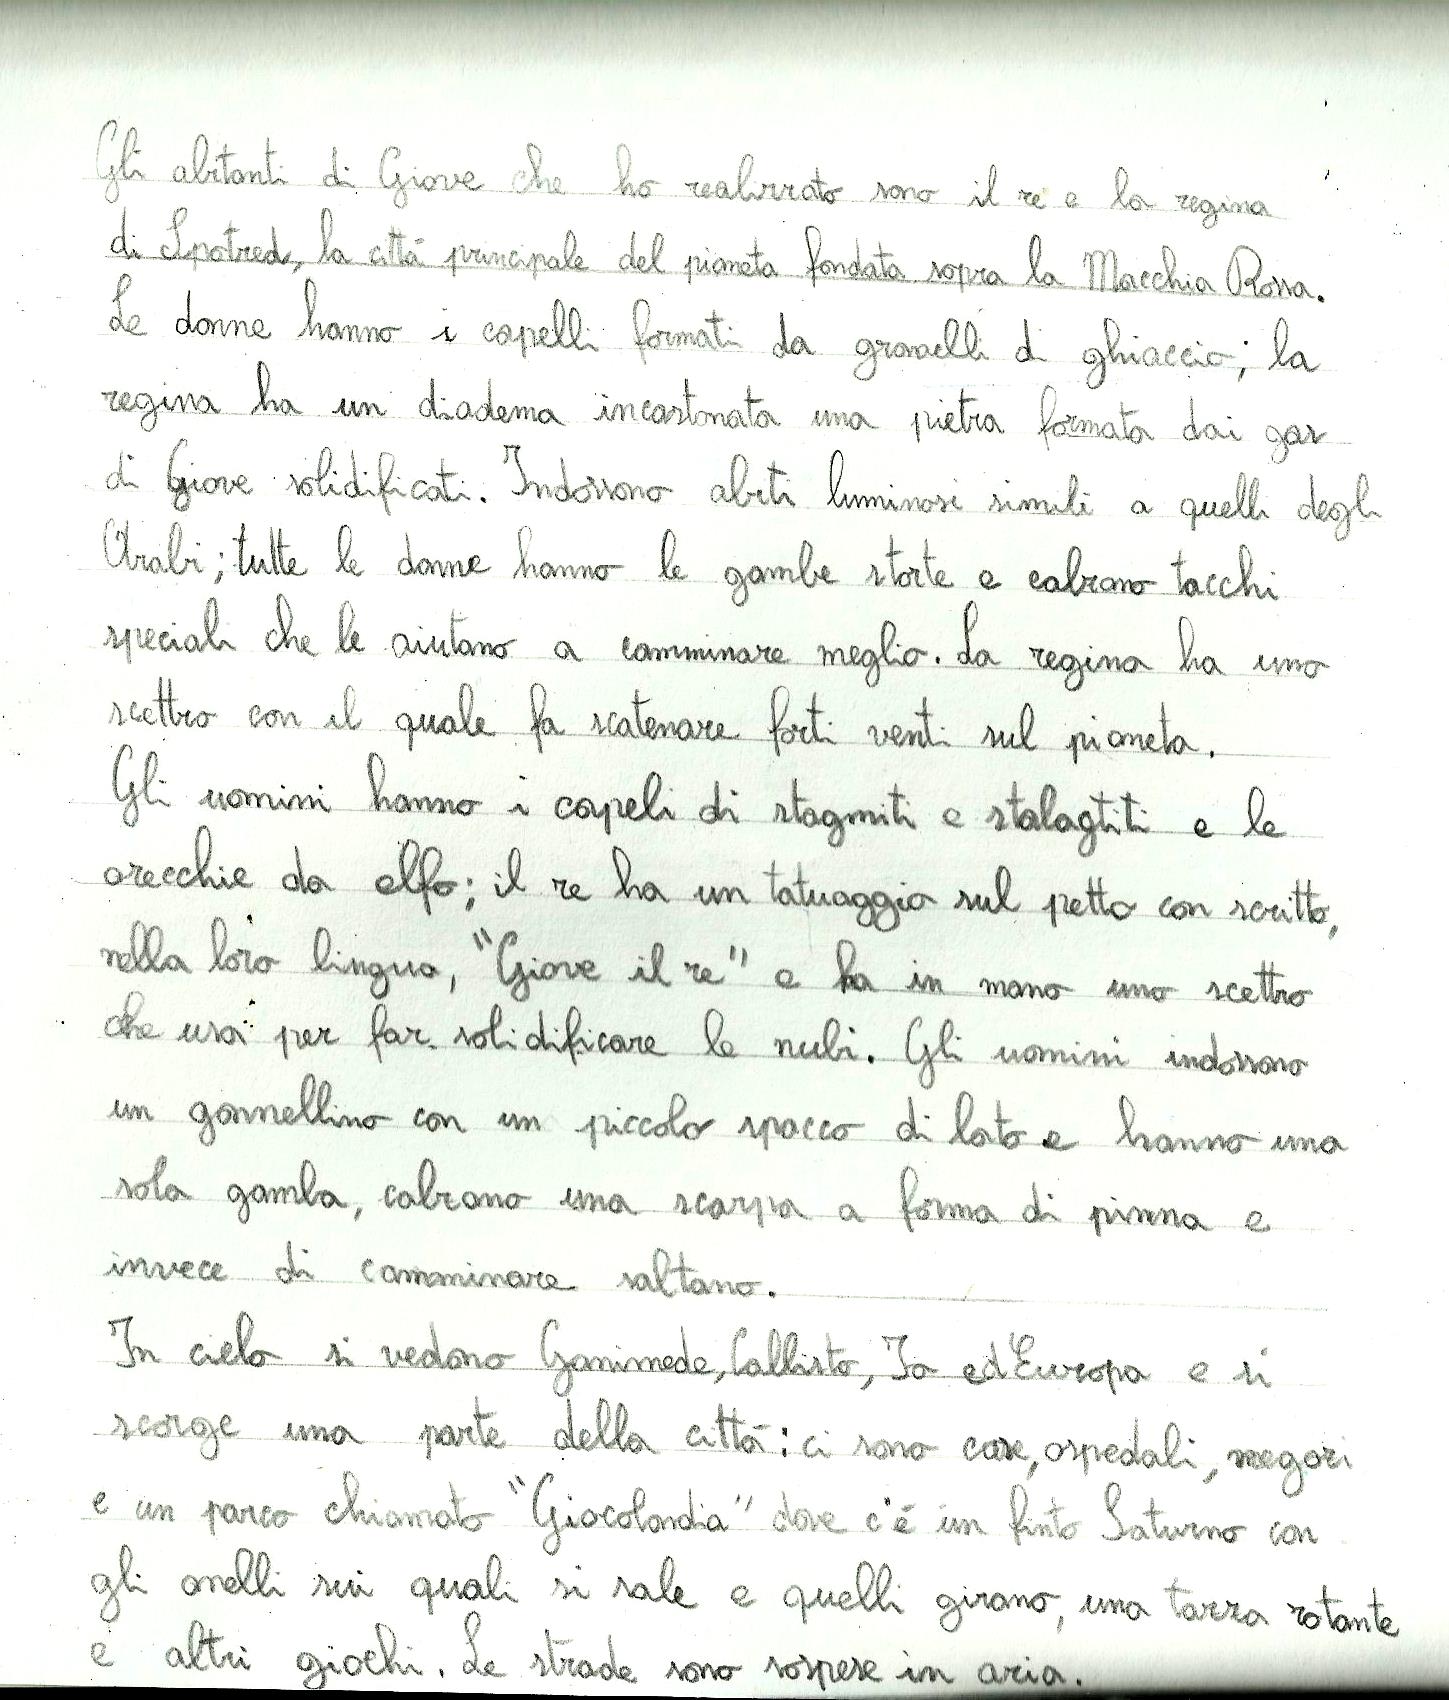 Gli abitanti di Giove che ho realizzato sono il re e la regina
di Spotred, la città principale del pianeta fondata sopra la Macchia Rossa.
Le donne hanno i capelli formati da granelli di ghiaccio; la
regina ha un diadema incastonata una pietra formata dai gas
di Giove solidificati. Indossono abiti luminosi simili a quelli degli
Arabi; tutte le donne hanno le gambe storte e calzano tacchi
speciali che le aiutano a camminare meglio. La regina ha uno
scettro con il quale fa scatenare forti venti sul pianeta.
Gli uomini hanno i capeli di stagmiti e stalagtiti e le
orecchie da elfo; il re ha un tatuaggio sul petto con scritto,
nella loro lingua, "Giove il re" e ha in mano uno scettro
che usa per far solidificare le nubi. Gli uomini indossono
un gonnellino con un piccolo spacco di lato e hanno una
sola gamba, calzano una scarpa a forma di pinna e
invece di camminare saltano.
In cielo si vedono Ganimede, Callisto, Io ed Europa e si
scorge una parte della città: ci sono case, ospedali, negozi
e un parco chiamato "Giocolandia" dove c'é un finto Saturno con
gli anelli sui quali si sale e quelli girano, una tazza rotante
e altri giochi. Le strade sono sospese in aria.